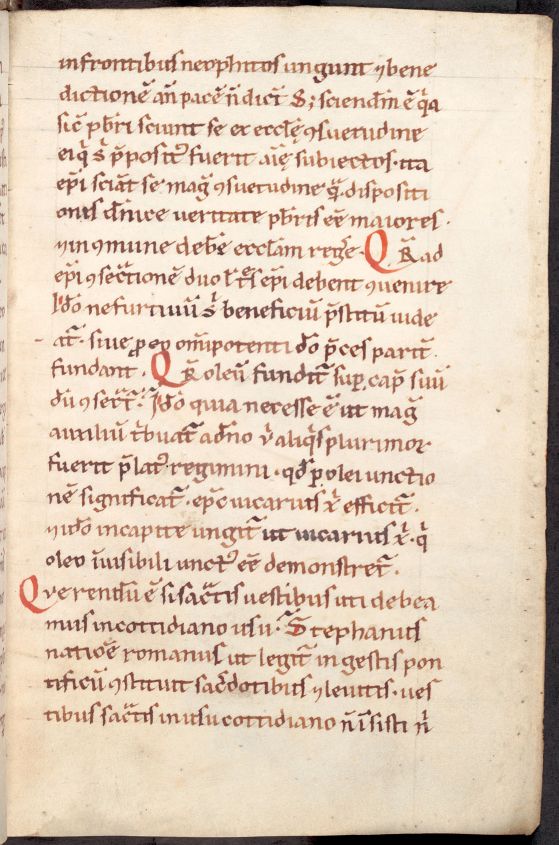 in frontibus neophitos ungunt ⁊ bene
dictionē añ pacē ñ dicūt S; sciendū ē q̄a
sic̄ p̄bri sciunt se ex ecclę ꝯsuetudine
eiq̄ s̄ p̄posit᷒ fuerit aīę subiectos · ita
ep̄i sciāt se mag̃ ꝯsuetudine q̄ dispositi
onis dn̄ice veritate p̄bris eē maiores ·
⁊ in ꝯmune debē ecclam regē · Q R̄ ad
ep̄i ꝯsecr̄tionē duo ł t̄s ep̄i debent ꝯvenire
Ido ne furtivū s̄ beneficiū p̄stitū vide
at᷒ · sive ꝓ eo om̄ipotenti dō p̄ces parit̄
fundant · Q R̄ oleū fundit᷒ sup̱ cap̄ sum
dū ꝯsecr̄t᷒ : Ido quia necesse ē ut mag̃
auxiliū t̄buat᷒ a dn̄o ū aliq̄s plurimor
fuerit p̄lat᷒ regimini · qd̄ ꝑ olei unctio
nē significat᷒ · ep̄c vicarius x̄ efficit᷒ ·
⁊ ido in capite ungit᷒ ut vicarius x̄ · q̄
oleo īvisibili unct᷒ eē demonstret᷒ ·
Querendū ē si sac̄tis vestibus uti debea
mus in cottidiano usu · Stephanus
natiōe romanus ut legit᷒ in gestis pon
tificū ꝯstituit sac̄dotibus ⁊ levitis · ves
tibus sac̄tis in usu cottidiano ñ ī sisti ñ